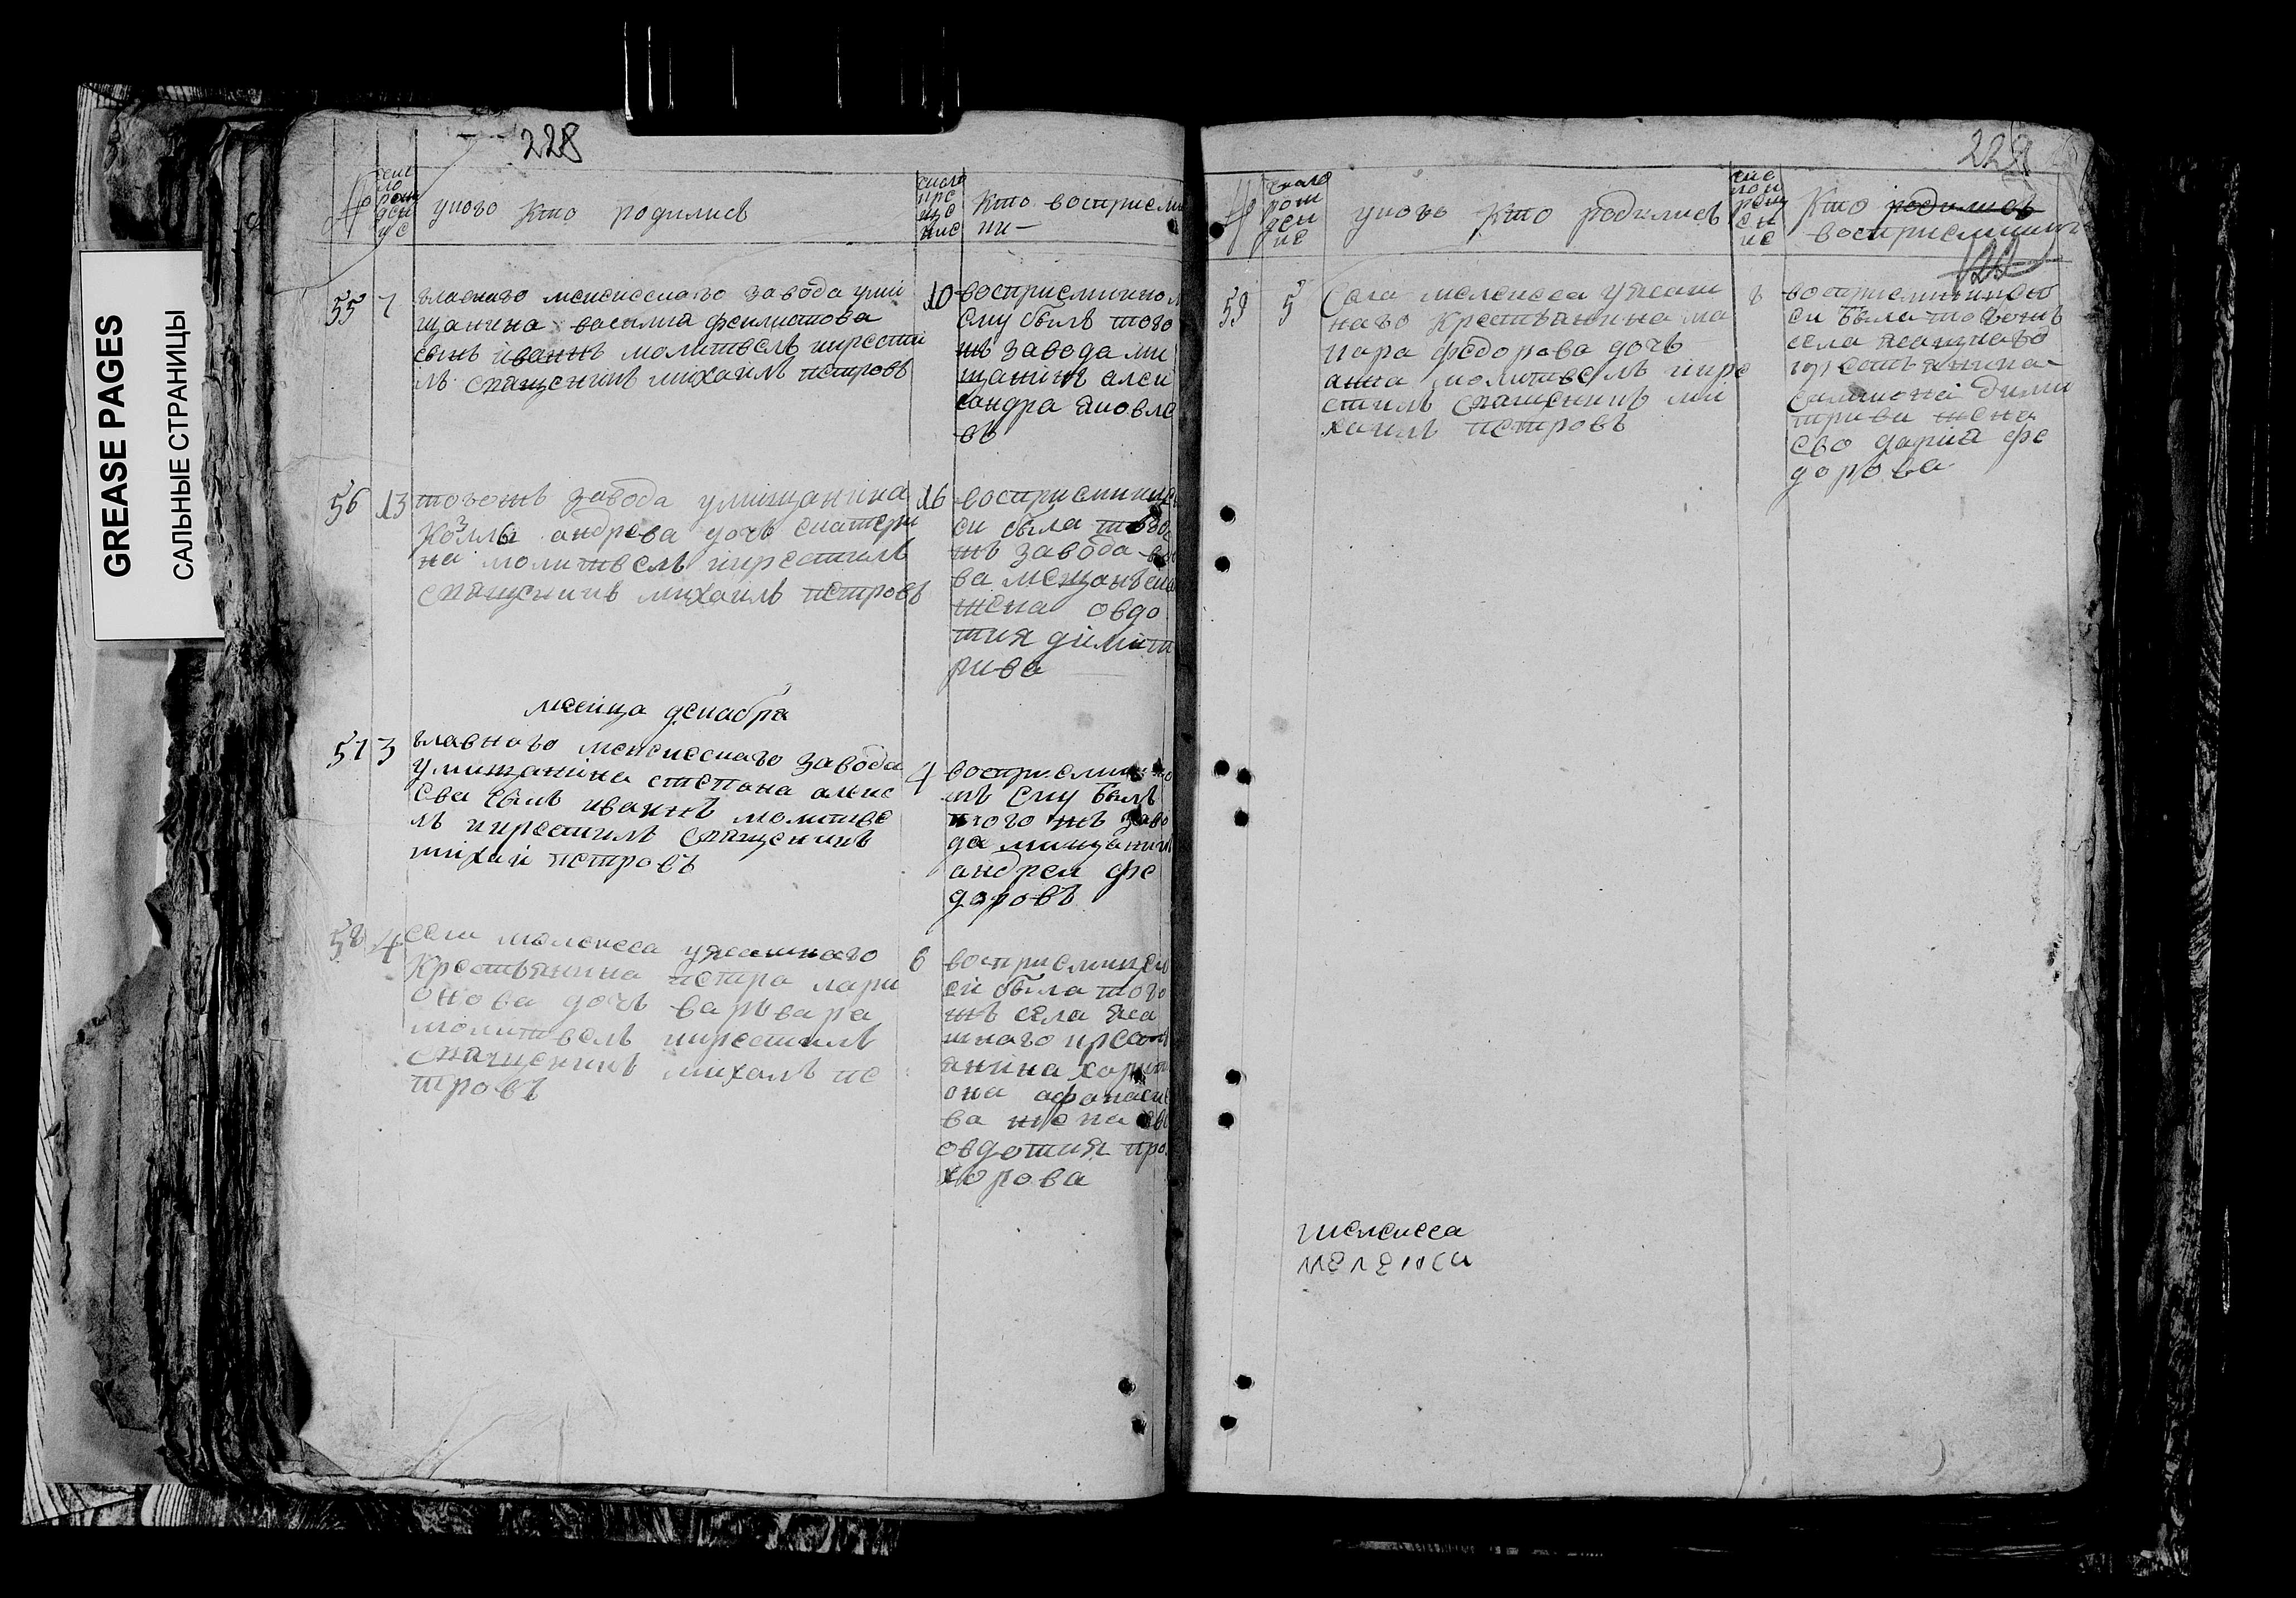 GREASE PAGES
САЛЬНЫЕ СТРАНИЦЫ
228
№
число рождение
у кого кто родились
число креще ние
кто восприемни
ки
55 7
главнаго мензенскаго завода у ми
щанина василия феилистова
сынъ иваннъ молитвелъ икрести
лъ свящженикъ михаилъ петровъ
10
восприемникомъ
ему былъ того
жъ завода ми
щанинъ алек
сандра яковле
въ
56 13
тогожъ завода у мищанина
козмы андрева дочь екатери
на молитвелъ икрестилъ
священникъ михаилъ петровъ
16
восприемнице
еи была того
жъ завода
ва мещанъска
жена овдо
тия димит
рива
месица декабра
57 3
главнаго мензенскаго завода
у мищанина степана алекс
ева сынъ иваннъ молитве
лъ икрестилъ священикъ
михаи петровъ
4
восприемнико
мъ ему былъ
того жъ заво
да мищанинъ
андреи фе
доровъ
58 4
села мелекеса у ясашнаго
крестьянина петра лари
онова дочь варъвара
молитвелъ икрестилъ
священикъ михалъ пе
тровъ
6
восприемнице
еи была того
жъ села яса
шнаго крестья
анина харит
она афанасие
ва жена ево
овдотия про
хорова
229
№
число рож дени ие
у кого кто родились
кто родились
восприемники
59 5
села мелекеса у ясаш
наго крестьянина ма
кара федорова дочь
анна молитвелъ икре
стилъ священикъ ми
хаилъ петровъ
8
восприемникою
еи была тогожъ
села ясашнаго
крестьянина
симиона дими
триви жена
ево дария фе
дорова
мелекеса
мелекси